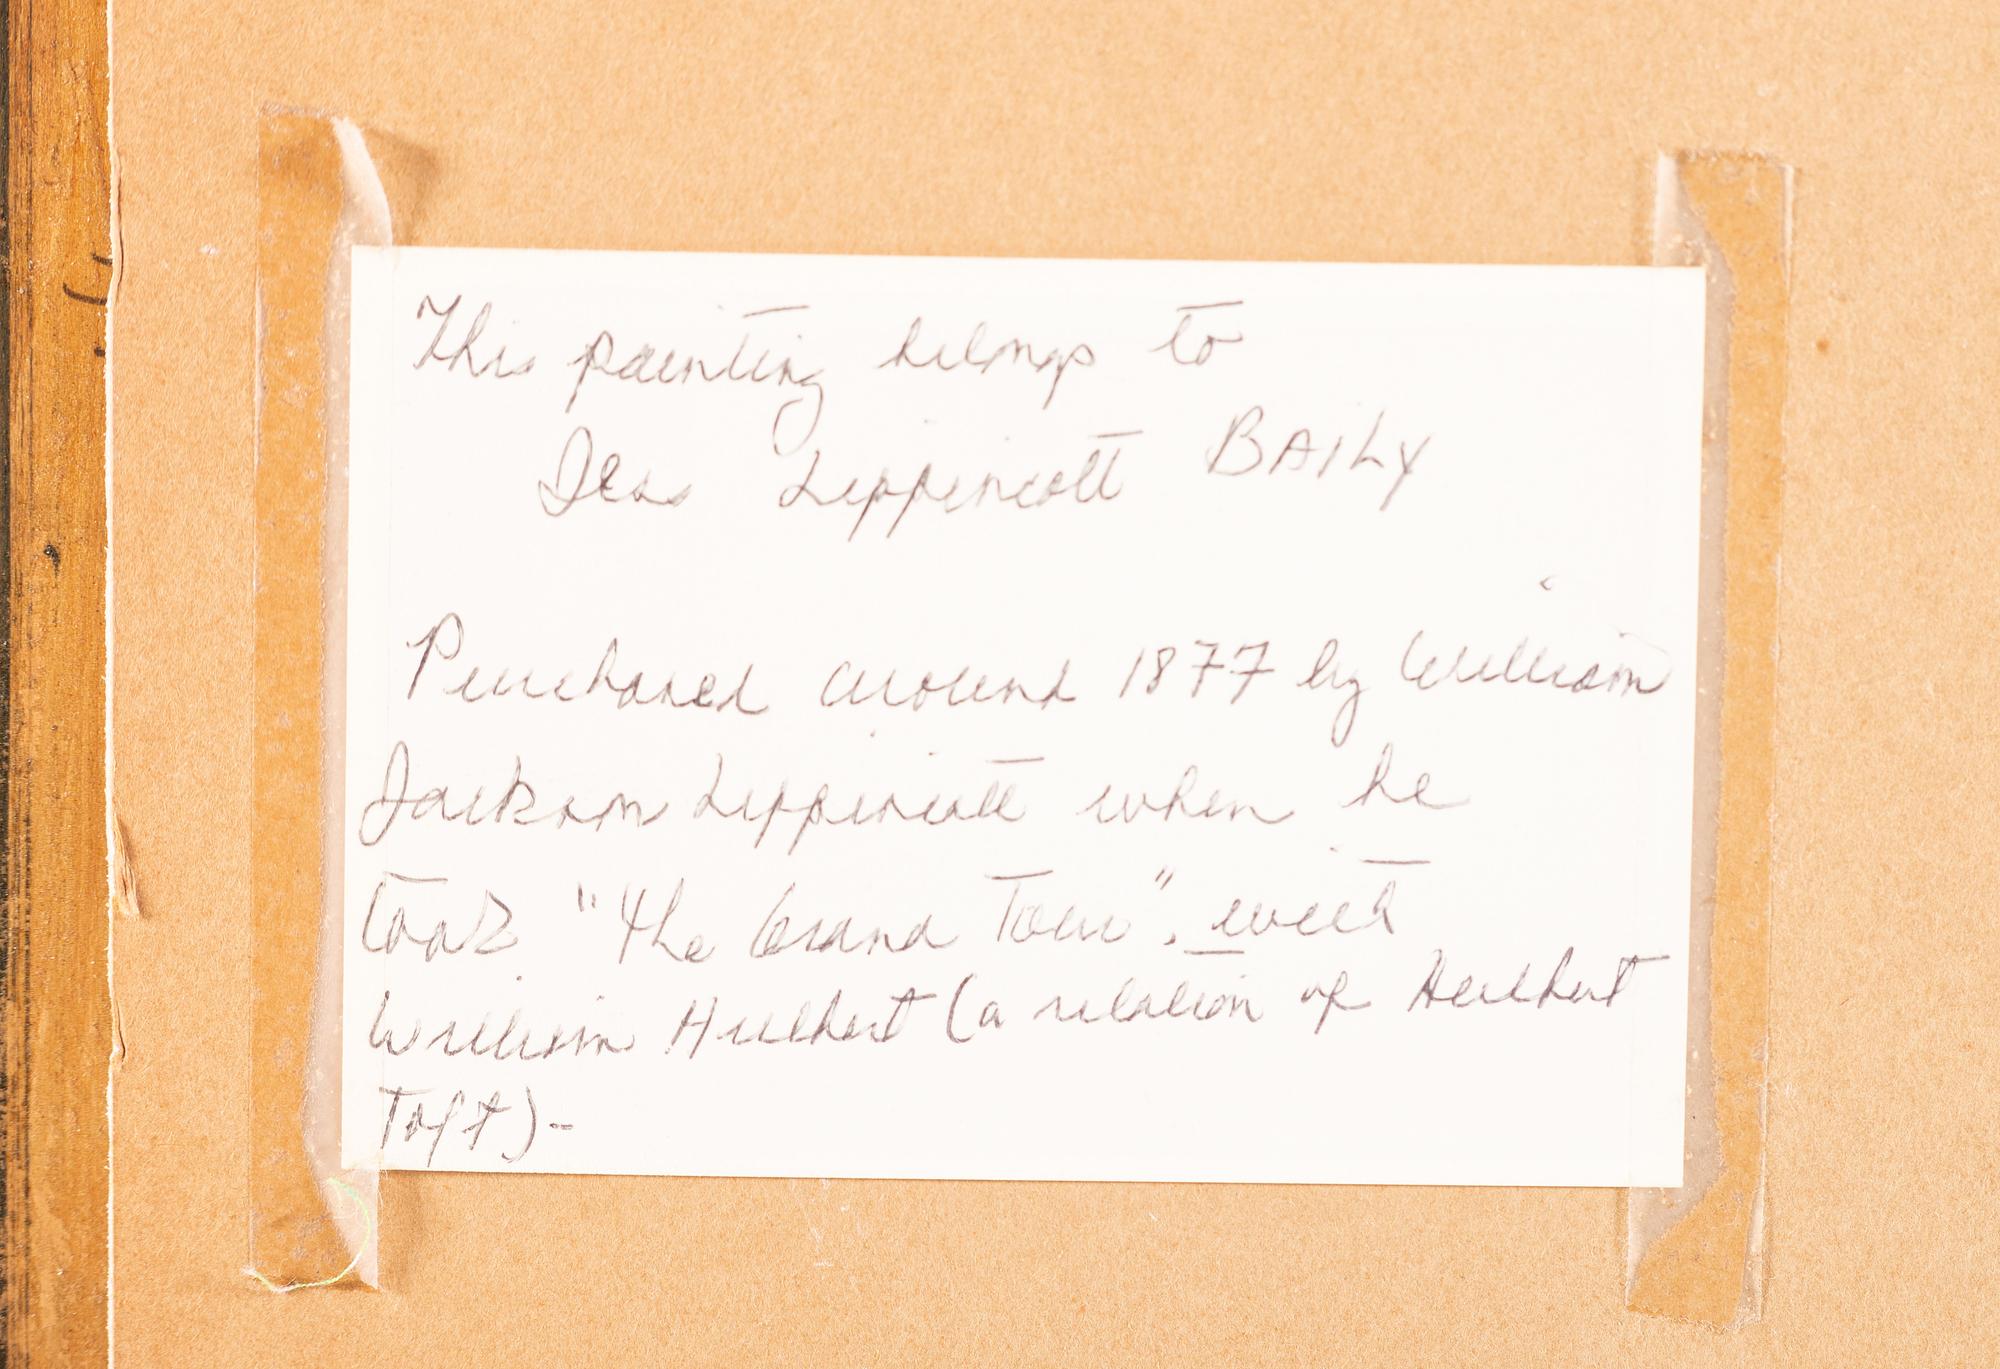 This painting belongs to
Lippincott BAILY
Purchased around 1877 by William
Jackson Lippincott when he
took "The Grand Tour". with
William Hulbert (a relation of Hulbert
Toft)-